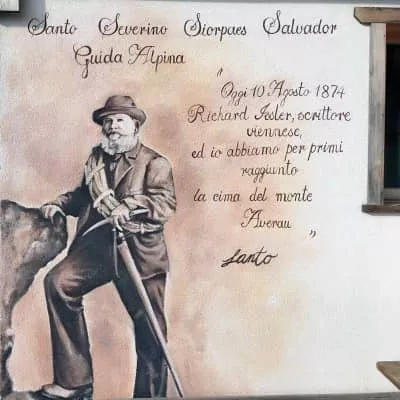 Santo Severino Siorpaes Salvador
Guida Alpina
"Oggi 10 Agosto 1874
Richard Issler, scrittore
viennese,
ed io abbiamo per primi
raggiunto
la cima del monte
Averau"
Santo